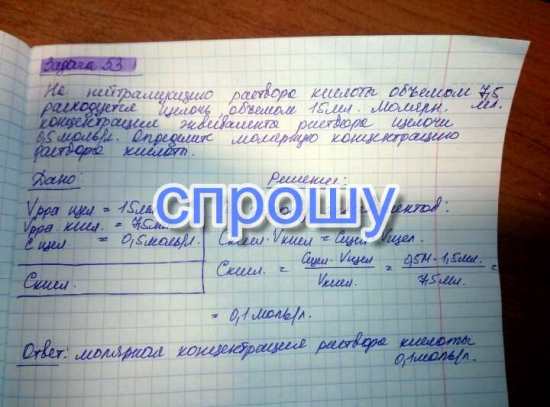 Задача 53
На нейтрализацию раствора кислоты объемом 7,5 мл.
расходуется щелочь объемом 15мл. Молярн.
концентрация эквивалента раствора щелочи
0,5моль/л. Определите молярную концентрацию
раствора кислоты.
Дано: Решение:
Vрра щел = 15мл
Vрра кисл. = 7,5мл
С щел = 0,5моль/л.
Скисл.
Скисл · Vкисл = Сщел · Vщел.
Скисл. = Сщел · Vщел / Vкисл. = 0,5Н · 1,5мл. / 7,5мл. =
= 0,1моль/л.
Ответ: молярная концентрация раствора кислоты
0,1моль/л.
спрошу